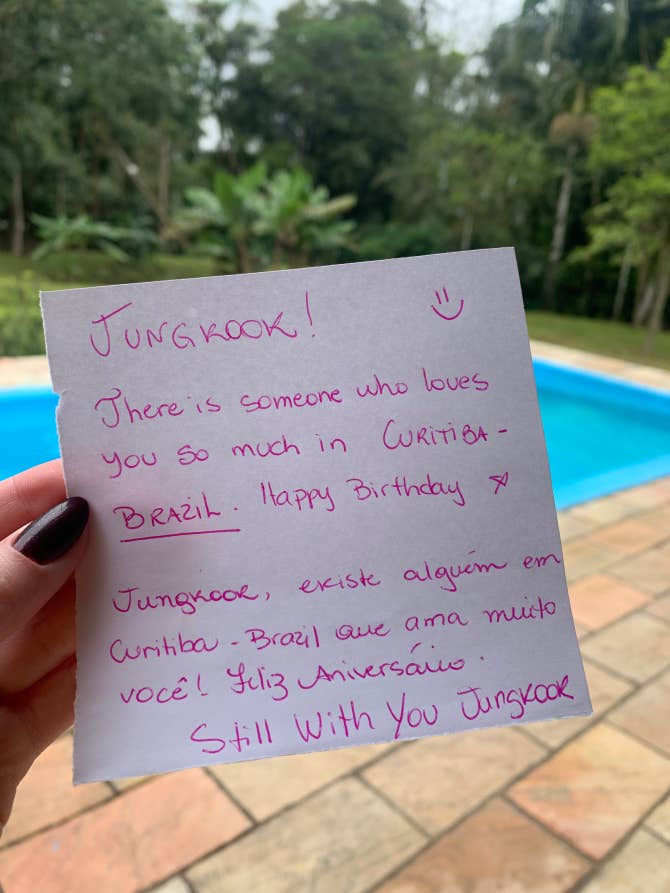 JUNGKOOK!
There is someone who loves
you so much in CURITIBA -
BRAZIL. Happy Birthday
Jungkook, existe alguém em
Curitiba - Brazil que ama muito
você! Feliz Aniversário.
Still With You Jungkook